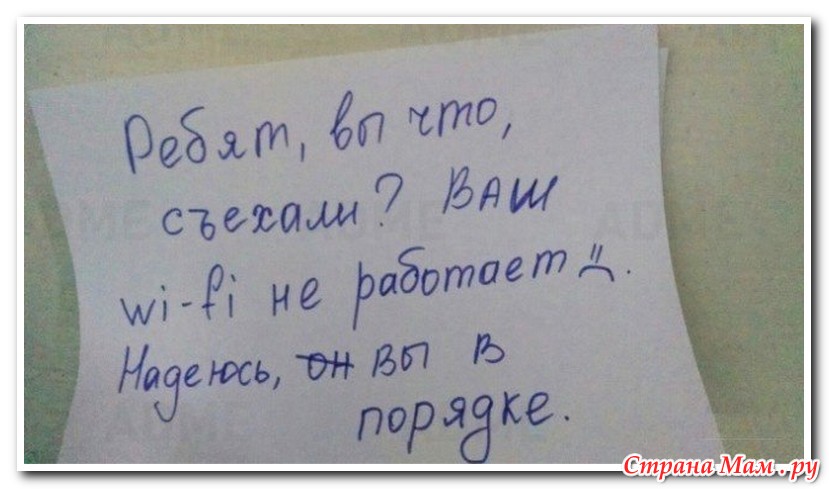 Ребят, вы что,
съехали? ВАШ
wi-fi не работает :(.
Надеюсь, он вы в
порядке.
ADME
ADME
ADME
Страна Мам.ру